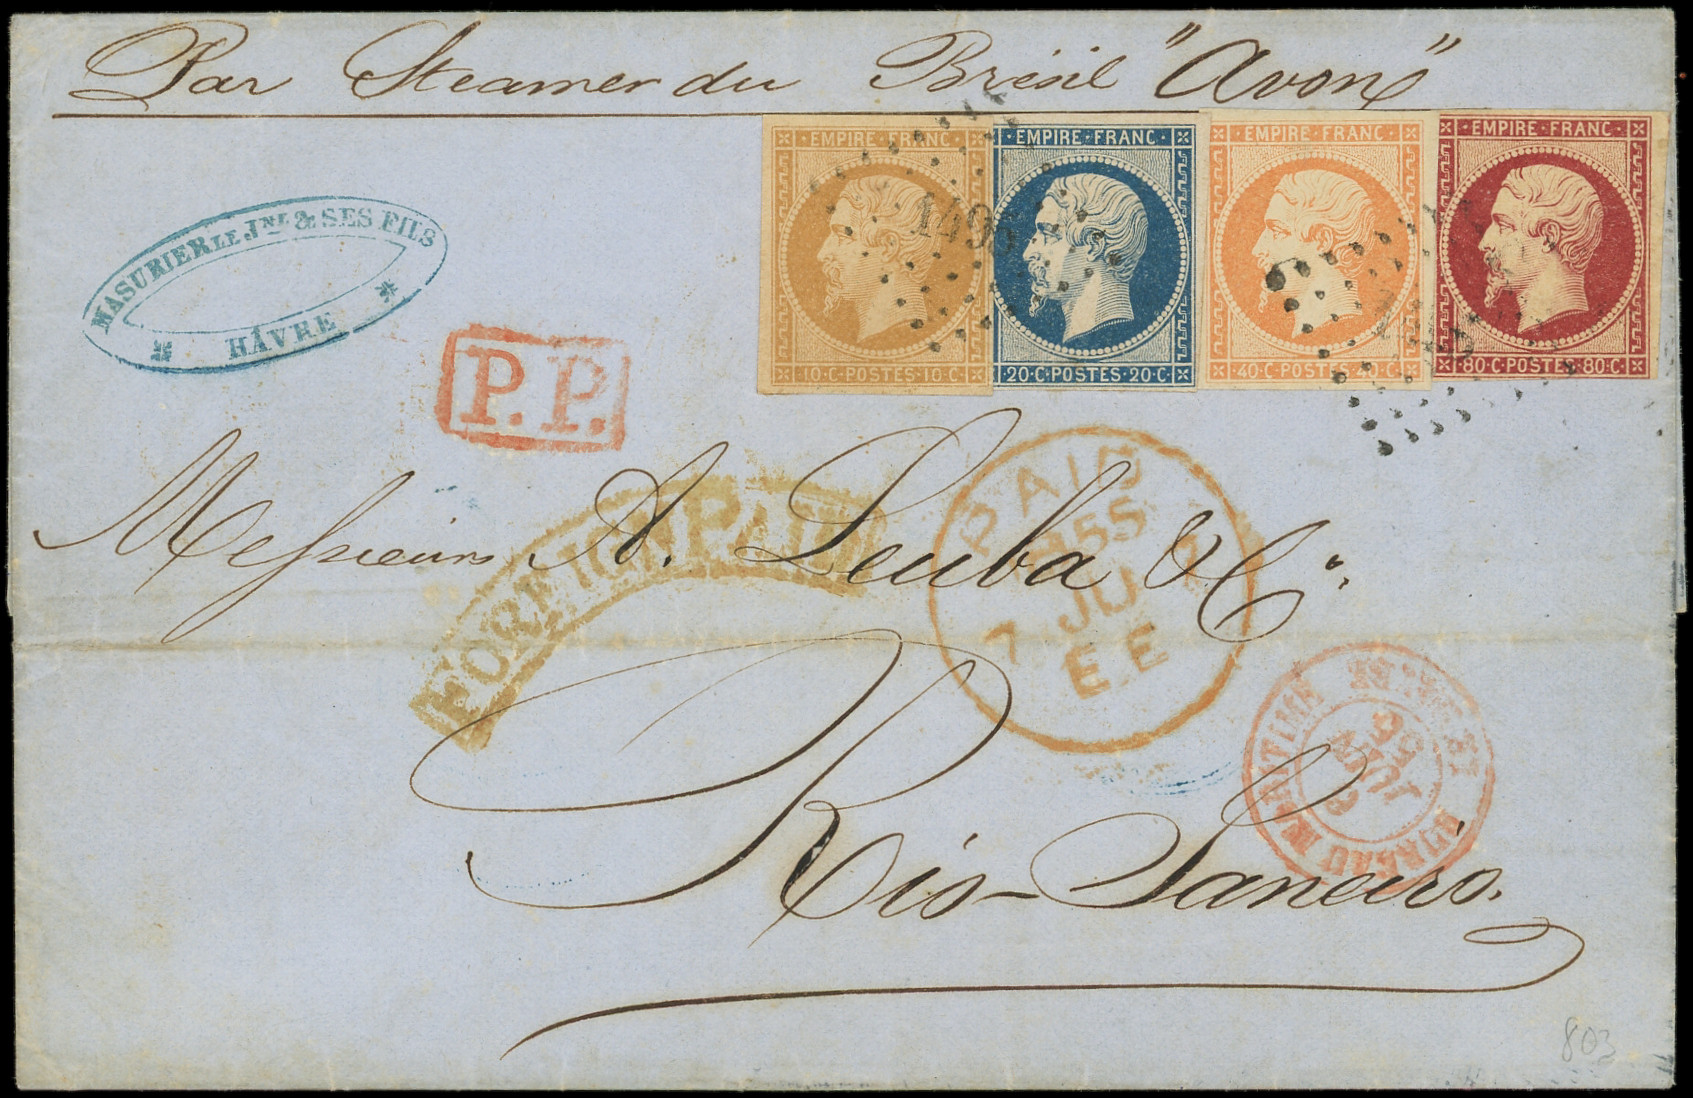 Par Steamer du Brésil "Avon"
EMPIRE·FRANC·
10·C·POSTES·10·C·
EMPIRE·FRANC·
20·C·POSTES·20·C·
EMPIRE·FRANC·
40·C·POSTES·40·C·
EMPIRE·FRANC·
80·C·POSTES·80·C·
1495
1495
MASURIER LE JNE & SES FILS
HÂVRE
P.P.
Messieurs A. Leuba & Co.
FOREIGN PAID
PAID
1855
7 JU 7
EE
BUREAU MARITIME
JUIN
Rio-Janeiro.
803